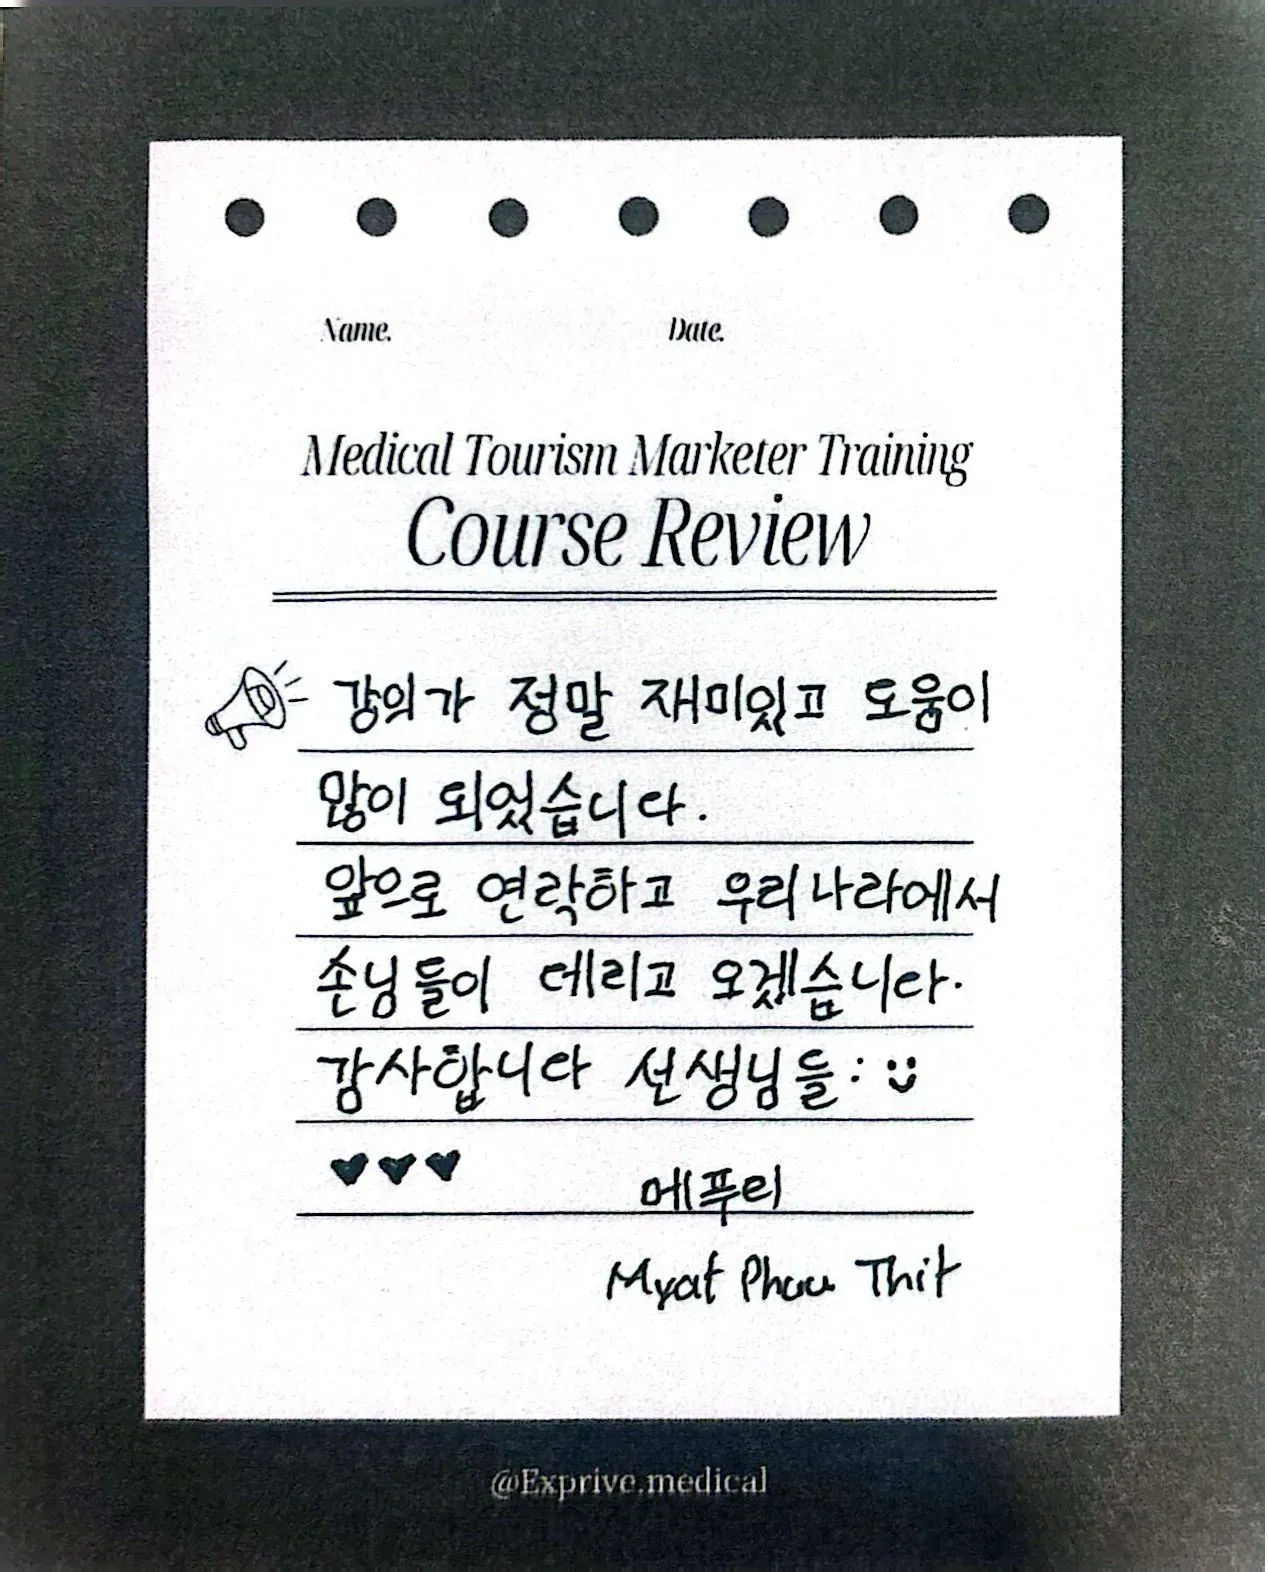 Name. Date.
Medical Tourism Marketer Training
Course Review
강의가 정말 재미있고 도움이
많이 되었습니다.
앞으로 연락하고 우리나라에서
손님들이 데리고 오겠습니다.
감사합니다 선생님들:
메푸리
Myat Phuu Thit
@Exprive.medical